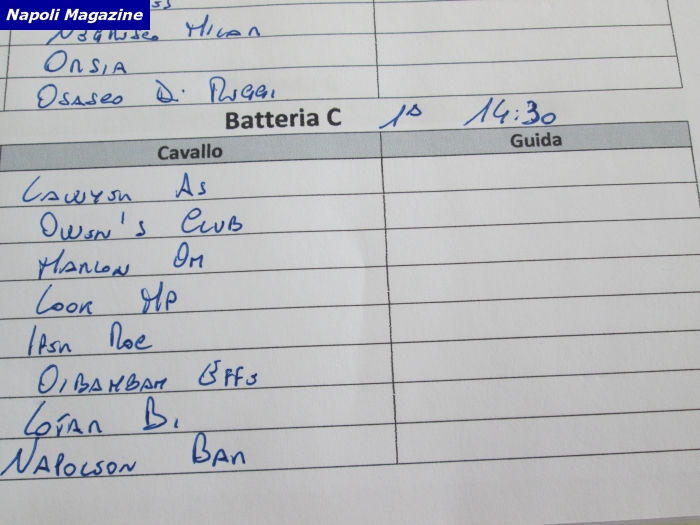 Napoli Magazine
NEGRESCO MILAR
ORSIA
OSASCO DI RUGGI
Batteria C 1ª 14:30
Cavallo Guida
LAWYER AS
OWEN'S CLUB
MARLON OM
LOOK MP
IPER ROC
OIBAMBAM EFFE
LOTAR BI
NAPOLEON BAR